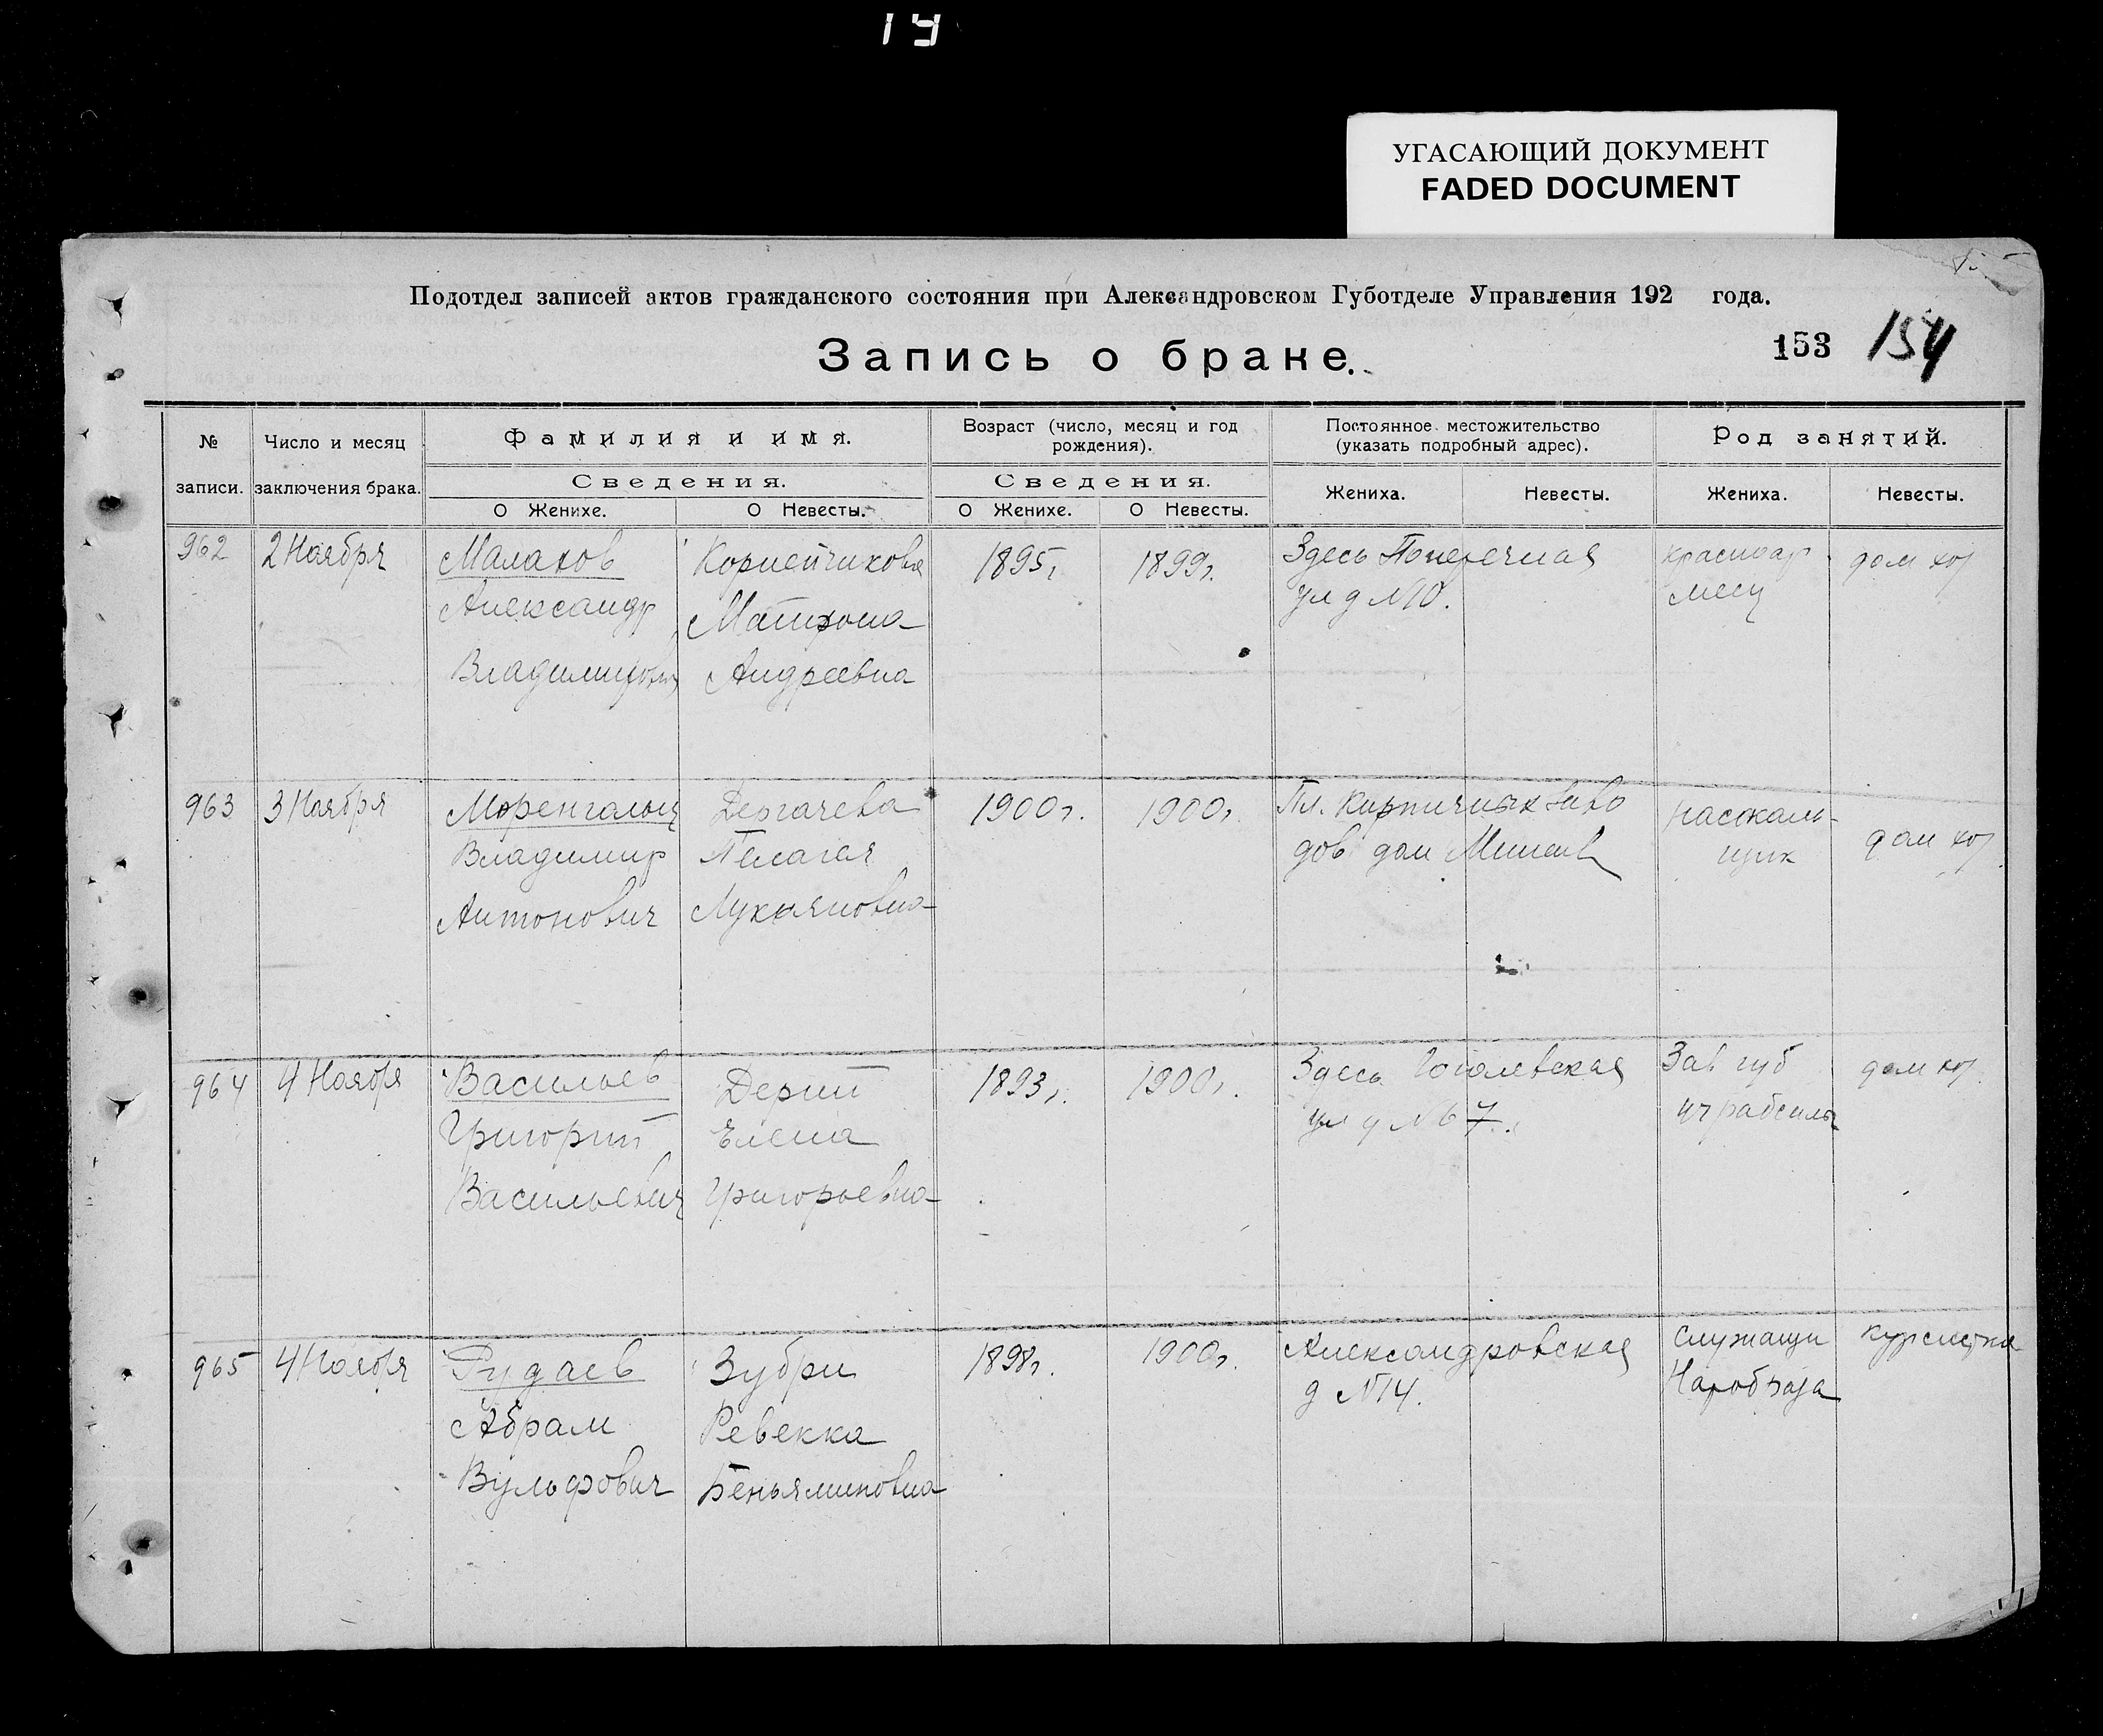 19
УГАСАЮЩИЙ ДОКУМЕНТ
FADED DOCUMENT
Подотдел записей актов гражданского состояния при Александровском Губотделе Управления 192 года.
Запись о браке.
153 154
№ записи.
Число и месяц заключения брака.
Фамилия и имя.
Сведения.
О Женихе.
О Невесты.
Возраст (число, месяц и год рождения).
Сведения.
О Женихе.
О Невесты.
Постоянное местожительство (указать подробный адрес).
Жениха.
Невесты.
Род занятий.
Жениха.
Невесты.
962
2 Ноября
Малахов
Александр
Владимирович
Корнейчикова
Матрона
Андреевна
1895г.
1899г.
Здесь Поперечная
ул д №10.
красноар
меец
дом хоз
963
3 Ноября
Владимир
Антонович
Дергачева
Пелагея
Лукьяновна
1900г.
1900г.
Пл. Кирпичных Заво
дов дом
дом хоз
964
4 Ноября
Васильев
Григорий
Васильевич
Дерий
Елена
Григорьевна
1893г.
1900г.
Здесь Гоголевская
ул д № 67.
Зав губ
дом хоз
965
4 Ноября
Рудаев
Абрам
Вульфович
Зубри
Ревекка
Беньяминовна
1898г.
1900г.
Александровская
д №14.
Служащи
Наробраза
курсистка